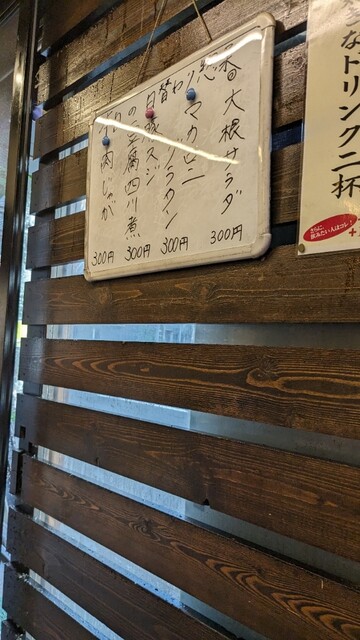 日替わり惣菜
大根サラダ 300円
マカロニグラタン 300円
豚スジの豆腐四川煮 300円
肉じゃが 300円
なドリンク二杯
さらに、
飲みたい人はコレ
+